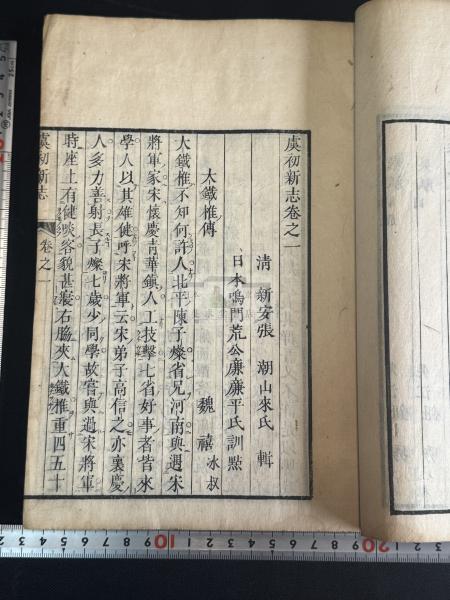 虞初新志卷之一
清 新安張 潮山來氏 輯
日本鳴門荒公廉廉平氏訓點
大鐵椎傳
魏 禧 冰叔
大鐵椎不知何許人北平陳子燦省兄河南與遇宋
將軍家宋懷慶青華鎮人工技擊七省好事者皆來
學人以其雄健呼宋將軍云宋弟子高信之亦懷慶
人多力善射長子燦七歲少同學故嘗與過宋將軍
時座上有健啖客貌甚寢右脇夾大鐵椎重四五十
虞初新志 卷之一